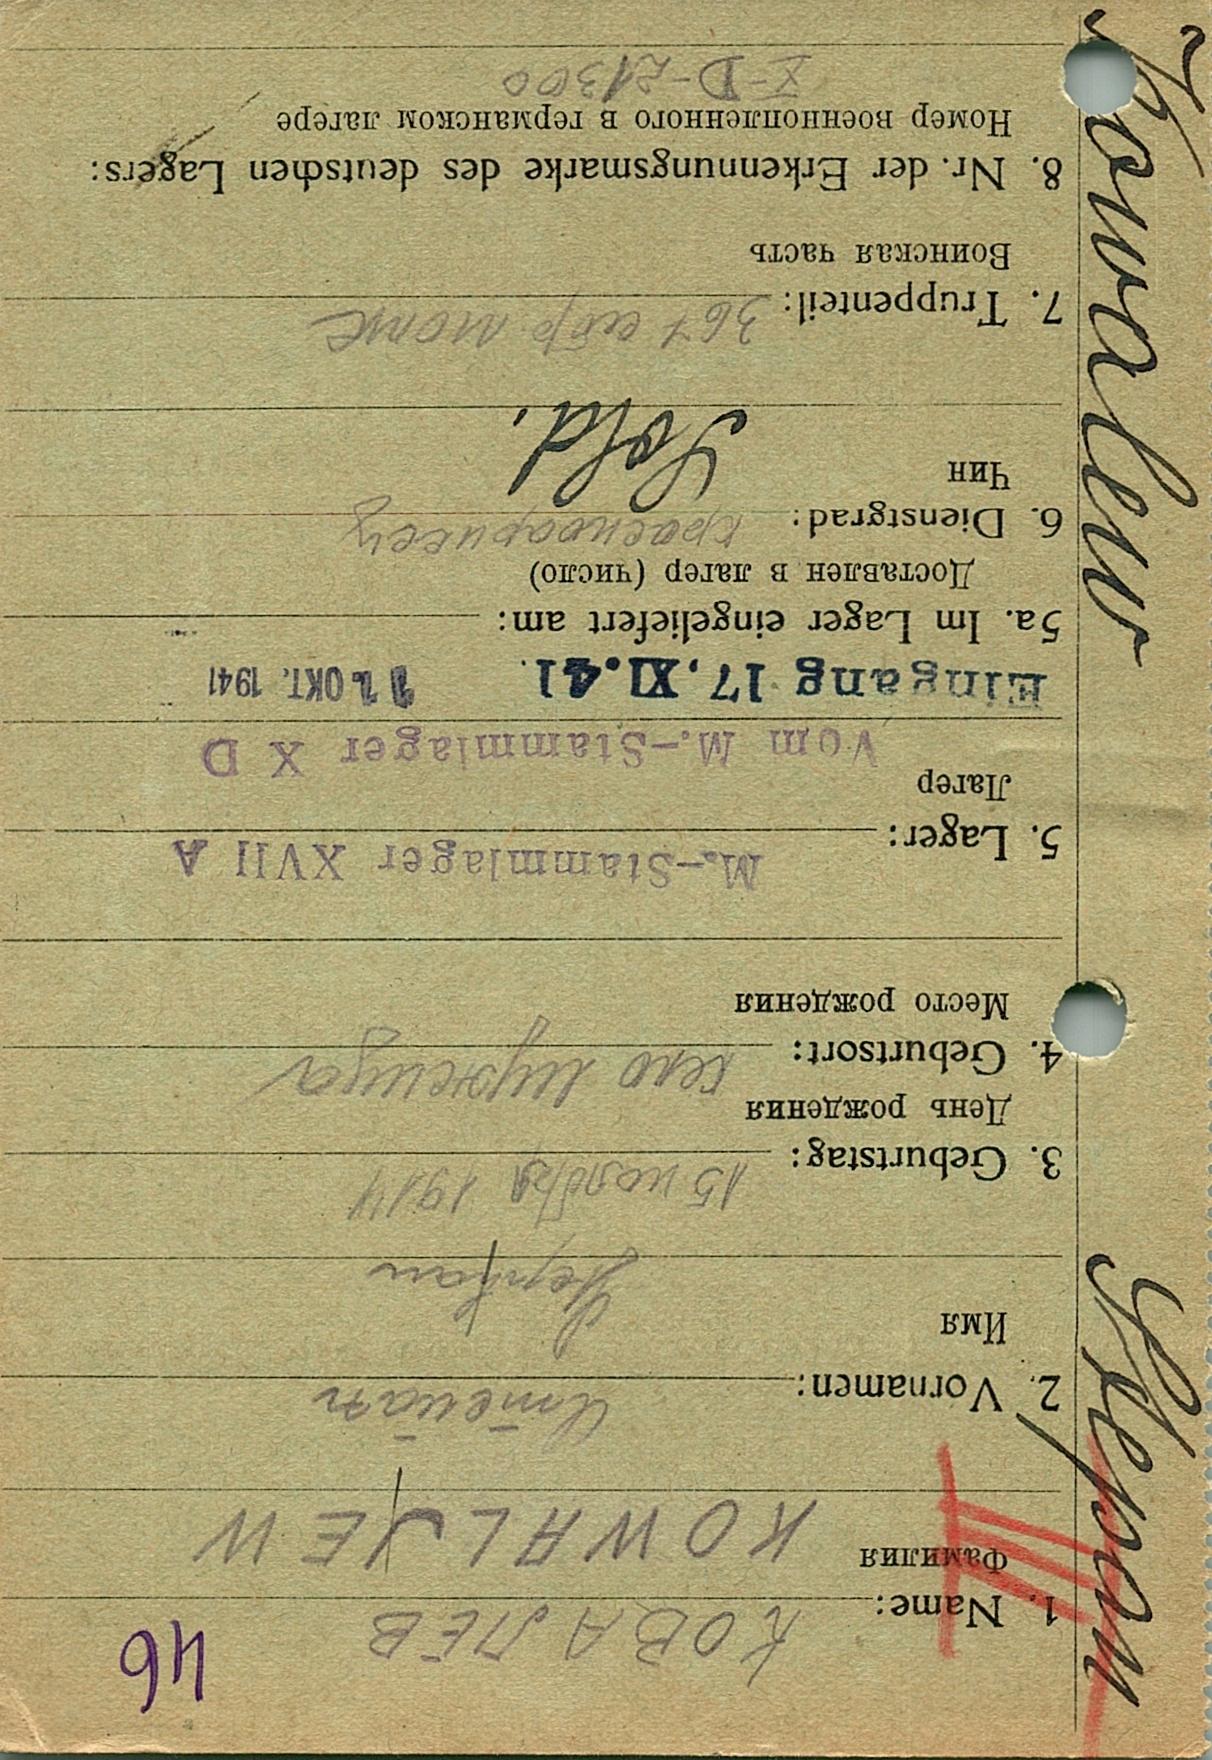 46
1. Name: КОВАЛЕВ
Фамилия
KOWALJEW
III
2. Vornamen:
Имя
Stepan
3. Geburtstag: 15 ноября 1914
День рождения
4. Geburtsort: село
Место рождения
5. Lager: M.-Stammlager XVII A
Лагер
Vom M.-Stammlager X D
Eingang 17. XI. 41 11. OKT. 1941
5a. Im Lager eingeliefert am:
Доставлен в лагер (число)
6. Dienstgrad: красноармеец
Чин
Sold.
7. Truppenteil: 367
Воинская часть
8. Nr. der Erkennungsmarke des deutschen Lagers:
Номер военнопленного в германском лагере
X-D-21300
Kowalew
Stepan